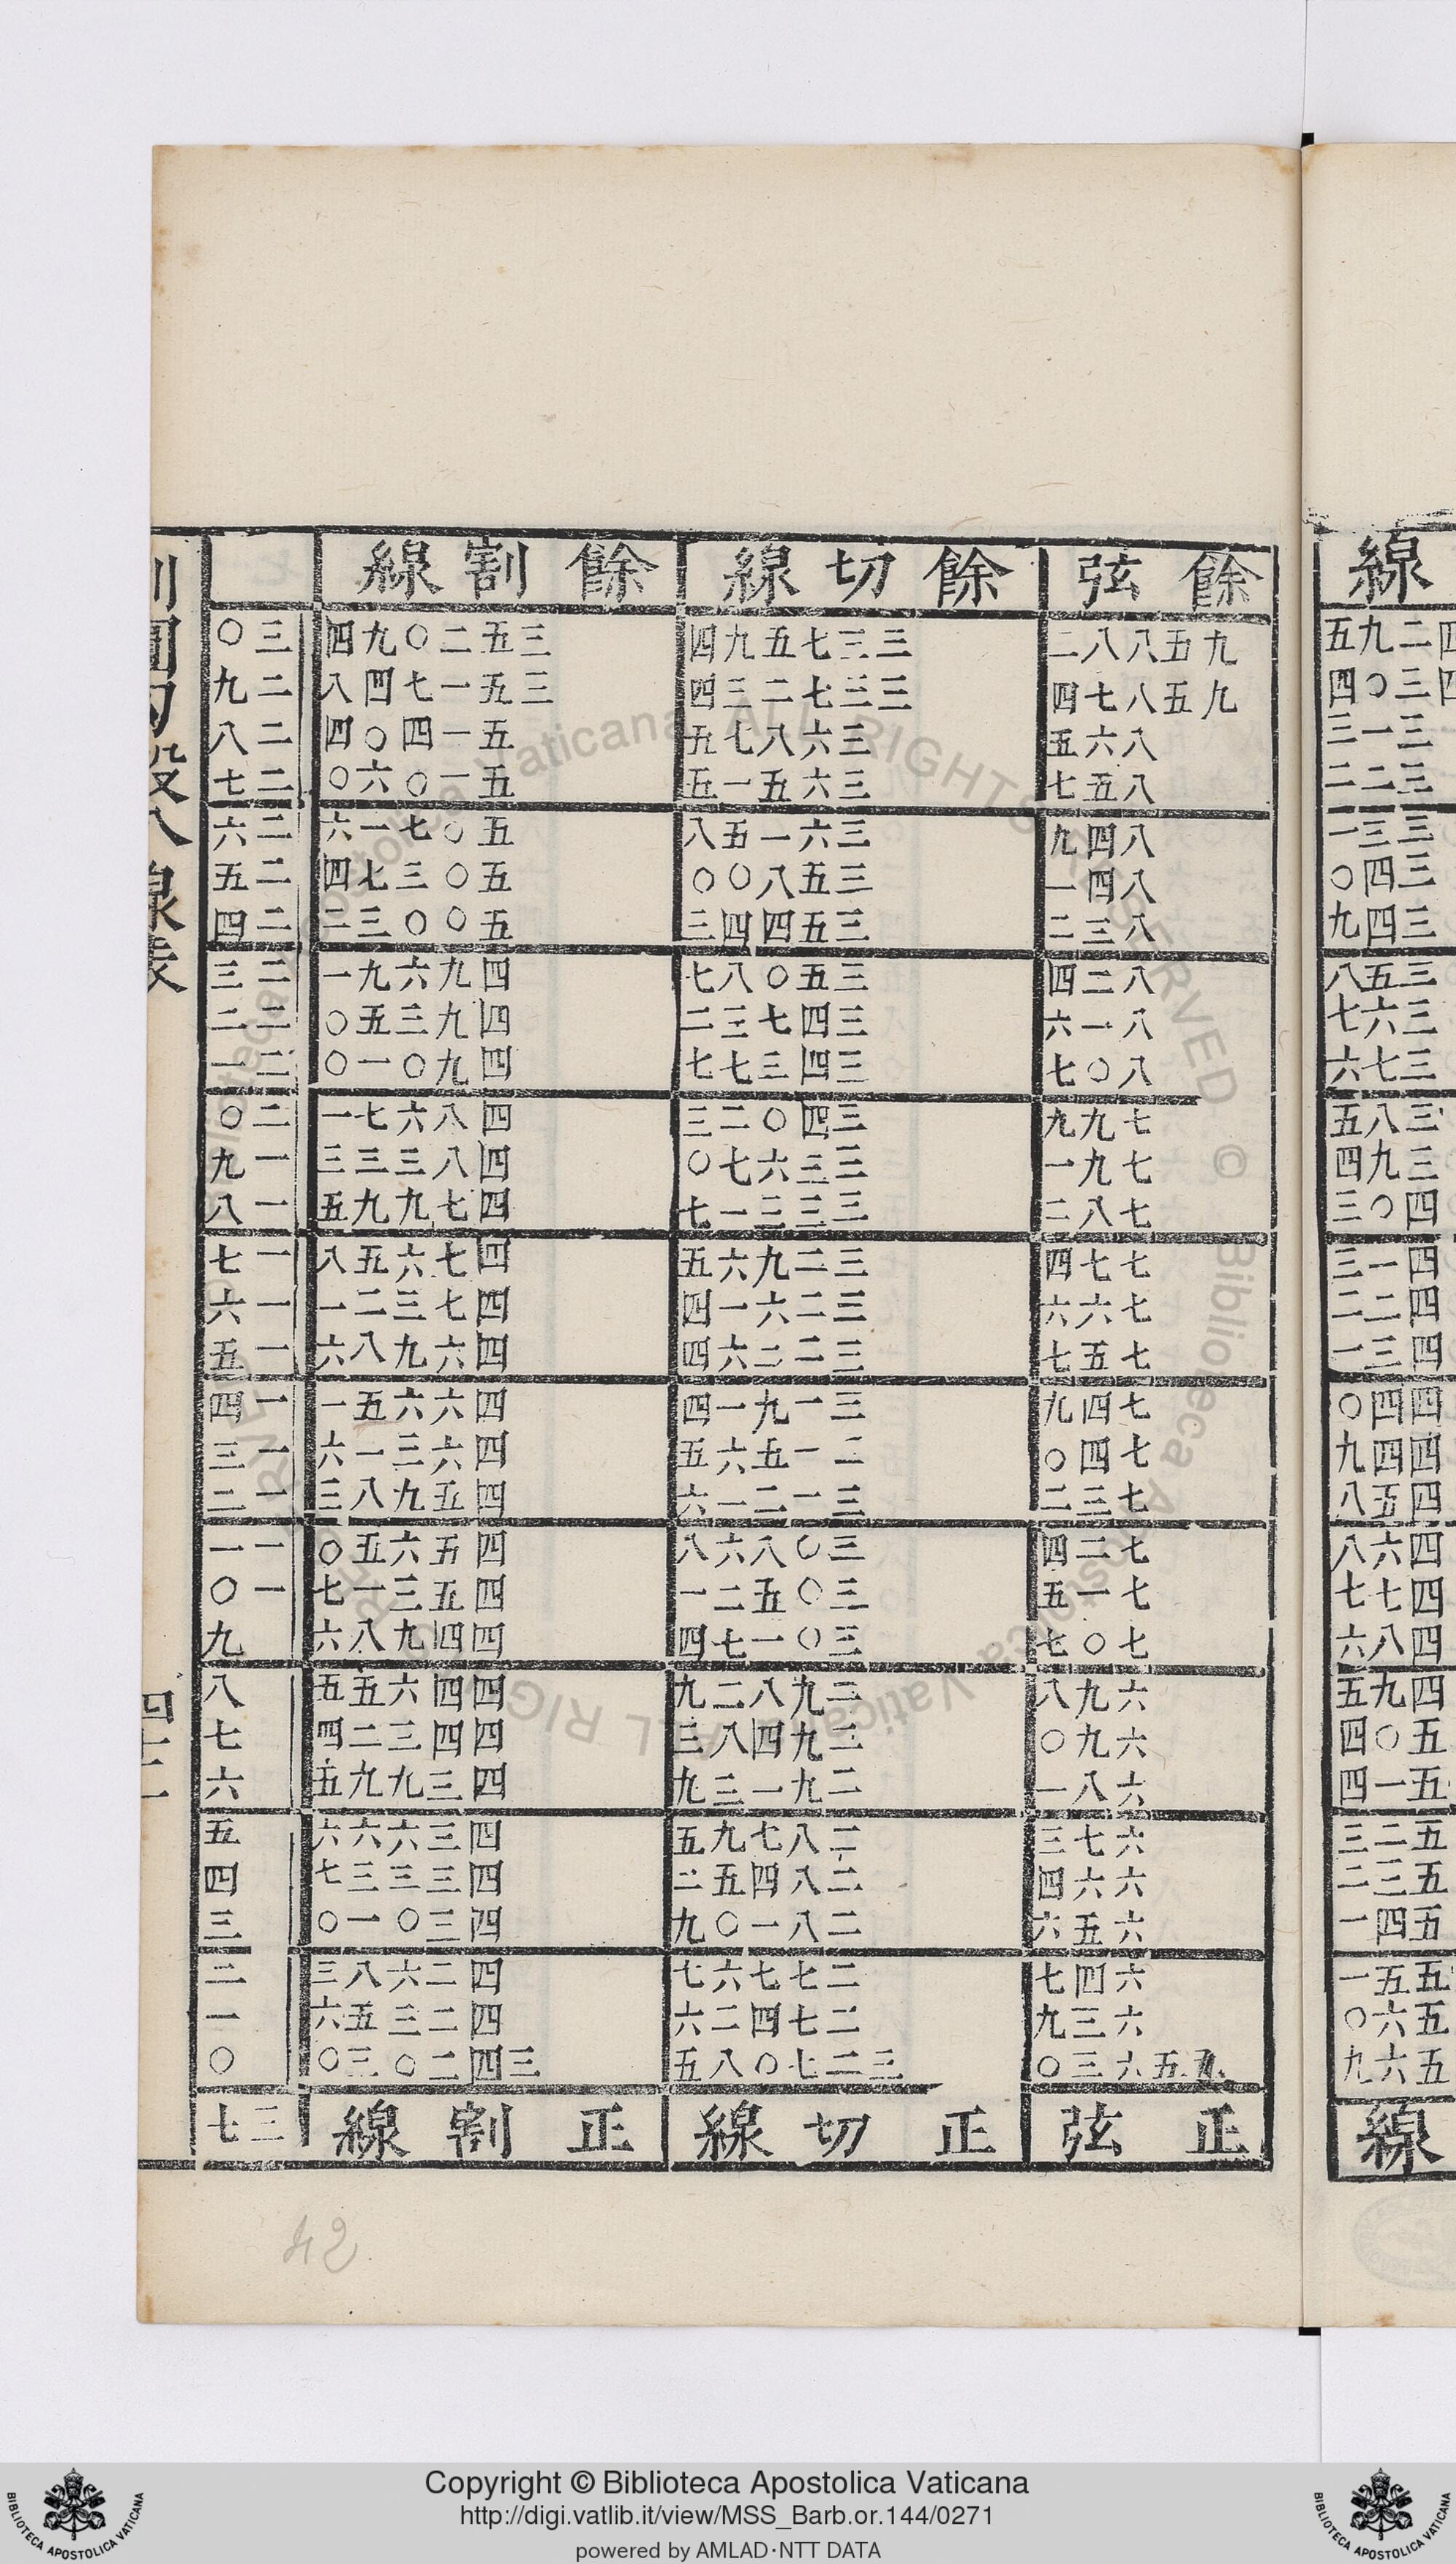 線
四二九五
四三〇四
三一三
三二二
三三一
三四〇
三四九
三五八
三六七
三七六
三八五
三九四
四〇三
四一三
四二二
四三一
四四〇
四四九
四五八
四六八
四七七
四八六
四九五
五〇四
五一四
五二三
五三二
五四一
五五一
五六〇
五六九
線
餘弦 餘切線 餘割線
九五八八二 三三七五九四 三五二〇九四 三〇
九五八七四 三三七二三四 三五一七四八 二九
八六五 三六八七五 五一四〇四 二八
八五七 三六五一五 五一〇六〇 二七
八四九 三六一五八 五〇七一六 二六
八四一 三五八〇〇 五〇三七四 二五
八三二 三五四四三 五〇〇三二 二四
八二四 三五〇八七 四九六九一 二三
八一六 三四七三二 四九三五〇 二二
八〇七 三四三七七 四九〇一〇 二一
七九九 三四〇二三 四八六七一 二〇
七九一 三三六七〇 四八三三三 一九
七八二 三三三一七 四七九九五 一八
七七四 三二九六五 四七六五八 一七
七六六 三二六一四 四七三二一 一六
七五七 三二二六四 四六九八六 一五
七四九 三一九一四 四六六五一 一四
七四〇 二一五六五 四六三一六 一三
七三二 三一二一六 四五九八三 一二
七二四 三〇八六八 四五六五〇 一一
七一五 三〇五二一 四五三一七 一〇
七〇七 三〇一七四 四四九八六 九
六九八 二九八二九 四四六五五 八
六九〇 二九四八三 四四三二四 七
六八一 二九一三九 四三九九五 六
六七三 二八七九五 四三六六六 五
六六四 二八四五二 四三三三七 四
六五六 二八一〇九 四三〇一〇 三
六四七 二七七六七 四二六八三 二
六三九 二七四二六 四二三五六 一
九五六三〇 三二七〇八五 三四二〇三〇 〇
正弦 正切線 正割線 三七
42
Copyright © Biblioteca Apostolica Vaticana
http://digi.vatlib.it/view/MSS_Barb.or.144/0271
powered by AMLAD·NTT DATA
BIBLIOTECA APOSTOLICA VATICANA
BIBLIOTECA APOSTOLICA VATICANA